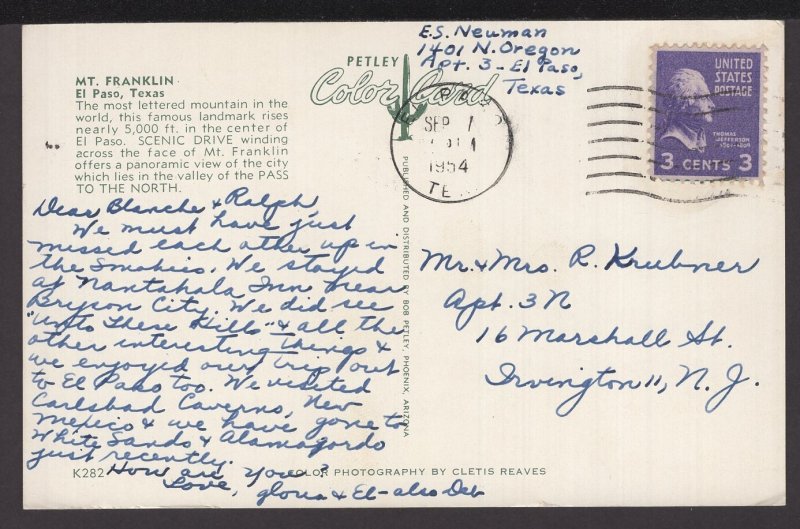 MT. FRANKLIN
El Paso, Texas
The most lettered mountain in the
world, this famous landmark rises
nearly 5,000 ft. in the center of
El Paso. SCENIC DRIVE winding
across the face of Mt. Franklin
offers a panoramic view of the city
which lies in the valley of the PASS
TO THE NORTH.
Dear Blanche & Ralph,
We must have just
missed each other up in
the Smokies. We stayed
at Nantahala Inn near
Bryson City. We did see
"Unto These Hills" & all the
other interesting things &
we enjoyed our trip out
to El Paso too. We visited
Carlsbad Caverns, New
Mexico & we have gone to
White Sands & Alamagordo
just recently.
How are you?
Love, Gloria & El-also Deb
K282
COLOR PHOTOGRAPHY BY CLETIS REAVES
PETLEY
Color Card
PUBLISHED AND DISTRIBUTED BY BOB PETLEY, PHOENIX, ARIZONA
E.S. Neuman
1401 N. Oregon
Apt. 3-El Paso,
Texas
SEP 1
1954
TE
UNITED
STATES
POSTAGE
THOMAS
JEFFERSON
1801-1809
3 CENTS 3
Mr. & Mrs. R. Kruebner
Apt. 3N
16 Marshall St.
Irvington 11, N. J.